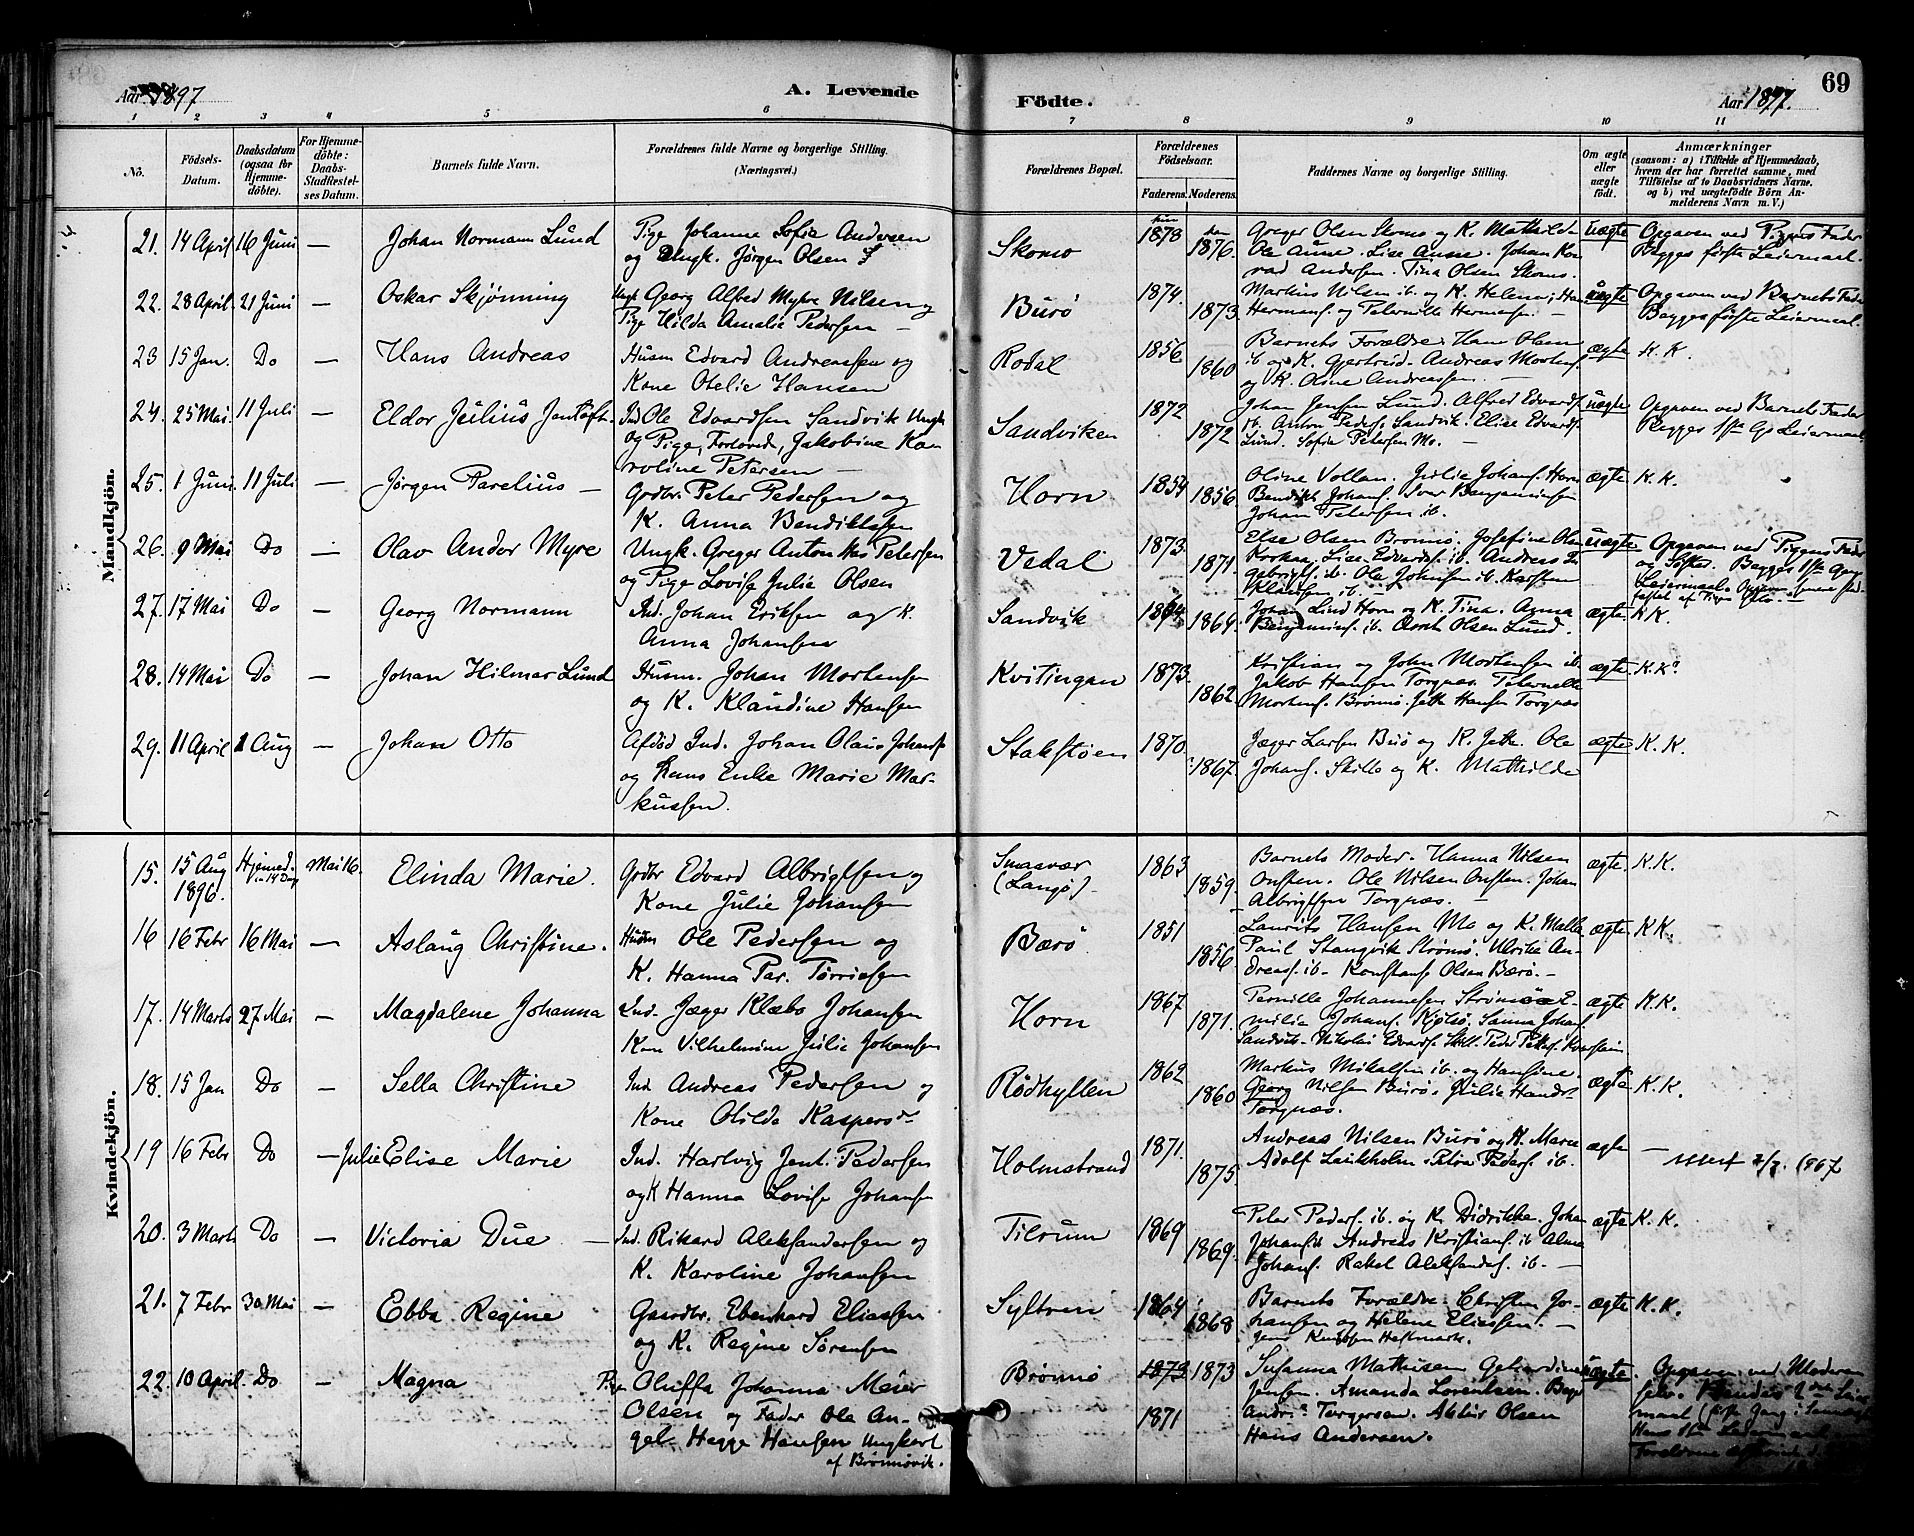 Aar 1897
A. Levende
Födte.
Aar 1897.
69
1 2 3 4 5 6 7 8 9 10 11
No.
Födsels-Datum.
Daabsdatum (ogsaa for Hjemmedöbte).
For Hjemmedöbte: Daabs-Stadfæstelses Datum.
Barnets fulde Navn.
Forældrenes fulde Navne og borgerlige Stilling. (Næringsvei.)
Forældrenes Bopæl.
Forældrenes Födselsaar.
Faderens. Moderens.
Faddernes Navne og borgerlige Stilling.
Om ægte eller uægte födt.
Anmærkninger
(saasom: a) i Tilfælde af Hjemmedaab,
hvem der har forrettet samme, med
Tilföielse af to Daabsvidners Navne.
og b) ved uægtefödte Börn An-
melderens Navn m. V.)
Mandkjön.
21. 14 April 16 Juni — Johan Normann Lund
Pige Johanne Sofie Andersen
og Ungk. Jörgen Olsen
Skomo 1878 1876.
Greger Olsen Skomo og K. Mathilde
Ole Aune. Lise Aune. Johan Kon
rad Andersen. Tina Olsen Skomo.
uægte Opgaven ved Pigens Fader
Begges förste Leiermaal.
22. 28 April 21 Juni — Oskar Skjönning
Ungk Georg Alfred Myhre Nilsen og
Pige Hilda Amalie Pedersen —
Burö 1874. 1873.
Markus Nilsen ib. og K. Helene; Hans
Hermans. og Peternille Hermansen. —
uægte Opgaven ved Barnets Fader
Begges förste Leiermaal.
23 15 Jan. Do — Hans Andreas
Husm Edvard Andreassen og
Kone Otelie Hansen
Rodal 1856 1860
Barnets Forældre. Hans Olsen
ib og K. Gjertrud. Andreas Mortens.
og K. Oline Andreassen. —
ægte K. K.
24. 25 Mai 11 Juli — Eldor Julius Jentoft
Ind Ole Edvardsen Sandvik Ungk
og Pige, Forlovede, Jakobine Ka
roline Petersen —
Sandviken 1872 1872
Johan Jensen Lund. Alfred Edvards.
ib. Anton Peders. Sandvik. Elise Edvards.
Lund. Sofie Petersen Mo. —
uægte Opgaven ved Barnets Fader
Begges 1ste Gs Leiermaal.
25. 1 Juni. 11 Juli — Jörgen Parelius —
Grdbr. Peter Pedersen og
K. Anna Bendiktsen
Horn 1854 1856.
Oline Vollan. Julie Johans. Horn
Bendikt Johans. Iver Benjaminsen
Johan Petersen ib.
ægte K. K.
26. 9 Mai Do — Olav Andor Myre
Ungk. Greger Anton Petersen
og Pige Lovise Julie Olsen
Vedal 1873. 1871.
Else Olsen Brönnö. Josefine Olsen
Lise Edvards. ib. Andreas In
gebrigts. ib. Ole Johnsen ib. Karsten
Klausen ib. —
uægte Opgaven ved Pigens Fader
og Söster. Begges 1ste Gangs
Leiermaal.
27. 17 Mai Do — Georg Normann
Ind. Johan Eriksen og K.
Anna Johansen
Sandvik 1864.
Johan Lund Horn og K. Tina. Anna
Benjamins. ib. Olsen Lund.
ægte K K.
28. 14 Mai Do — Johan Hilmar Lund
Husm. Johan Mortensen
og K. Klaudine Hansen
Kvitingan 1873. 1862.
Kristian og John Mortensen ib.
Jakob Hansen Torgnæs. Peternille
Mortens. Brönnö. Jette Hansen Torgnæs
ægte K. K.
29. 11 April 1 Aug — Johan Otto
Afdöd Ind. Johan Olaus Johans.
og Hans Enke Marie Mar-
kussen.
Stakstöen 1870. 1867.
Jæger Larsen Burö og K. Jette. Ole
Johans. Skille og K. Mathilde
ægte K. K.
Kvindekjön.
15. 15 Aug 1896. Hjemmed. Mai 16. Elinda Marie.
Grdbr Edvard Albrigtsen og
Kone Julie Johansen
Smaavær (Langö) 1863 1859.
Barnets Moder. Hanna Nilsen
Onsten. Ole Nilsen Onsten. Johan
Albrigtsen Torgnæs. —
ægte. K. K.
16 16 Febr 16 Mai — Aslaug Christine.
Husm Ole Pedersen og
K. Hanna Par. Torrisen
Bærö 1851 1856
Laurits Hansen Mo og K. Malla
Paul Strömö. Ulrikke An-
dreas. ib — Konstanse Olsen Bærö. —
ægte K K.
17. 14 Marts 27 Mai — Magdalene Johanna
Ind. Jæger Klæbo Johansen
Kone Vilhelmine Julie Johansen
Horn 1867 1871.
Pernille Johannesen Strömö E-
milie Johans. Sanna Johans.
Sandvik. Nikolai Edvards. Skill.
ægte K. K.
18. 15 Jan Do — Sella Christine
Ind Andreas Pedersen og
Kone Olilda Kaspersdr
Rödhyllen 1862 1860
Markus Mikalsen ib. og Hansine.
Georg Nilsen Burö. Julie Hansdr
Torgnæs.
ægte K. K.
19 16 Febr Do — Julie Elise Marie
Ind. Hartvig Jent. Pedersen
og K Hanna Lovise Johansen
Holmstrand 1871. 1875.
Andreas Nilsen Burö og K. Marie
Adolf Petra Peders. ib.
ægte — 1967
20. 3 Marts Do — Victoria Due —
Ind. Rikard Aleksandersen og
K. Karoline Johansen
Tilrum 1869 1869.
Peter Peders. ib. og K. Didrikke. Johan
Johans. Andreas Kristians. ib Alma
Johans. Rakel Aleksanders. ib. —
ægte K. K.
21. 7 Febr 30 Mai — Ebba Regine
Gaardbr. Ebenhard Eliassen
og K. Regine Sörensen
Syltern 1864 1868
Barnets Forældre. Christen Jo-
hansen og Helene Eliassen. —
Jens Knudsen Hestmark.
ægte K. K.
22. 10 April. Do — Magna
Pige Oluffa Johanna Meier
Olsen og Fader Ole An-
gel Hegge Hansen Ungkarl
af Brönnövik.
Brönnö 1873 1873 1871
Susanna Mathisen Gehardine
Jensen. Amanda Lorentsen.
Torgersen. Olsen
Hans Andersen.
uægte. Opgaven ved Moderen
selv. Hendes 2det Leier
maal
Hans 1ste Leiermaal